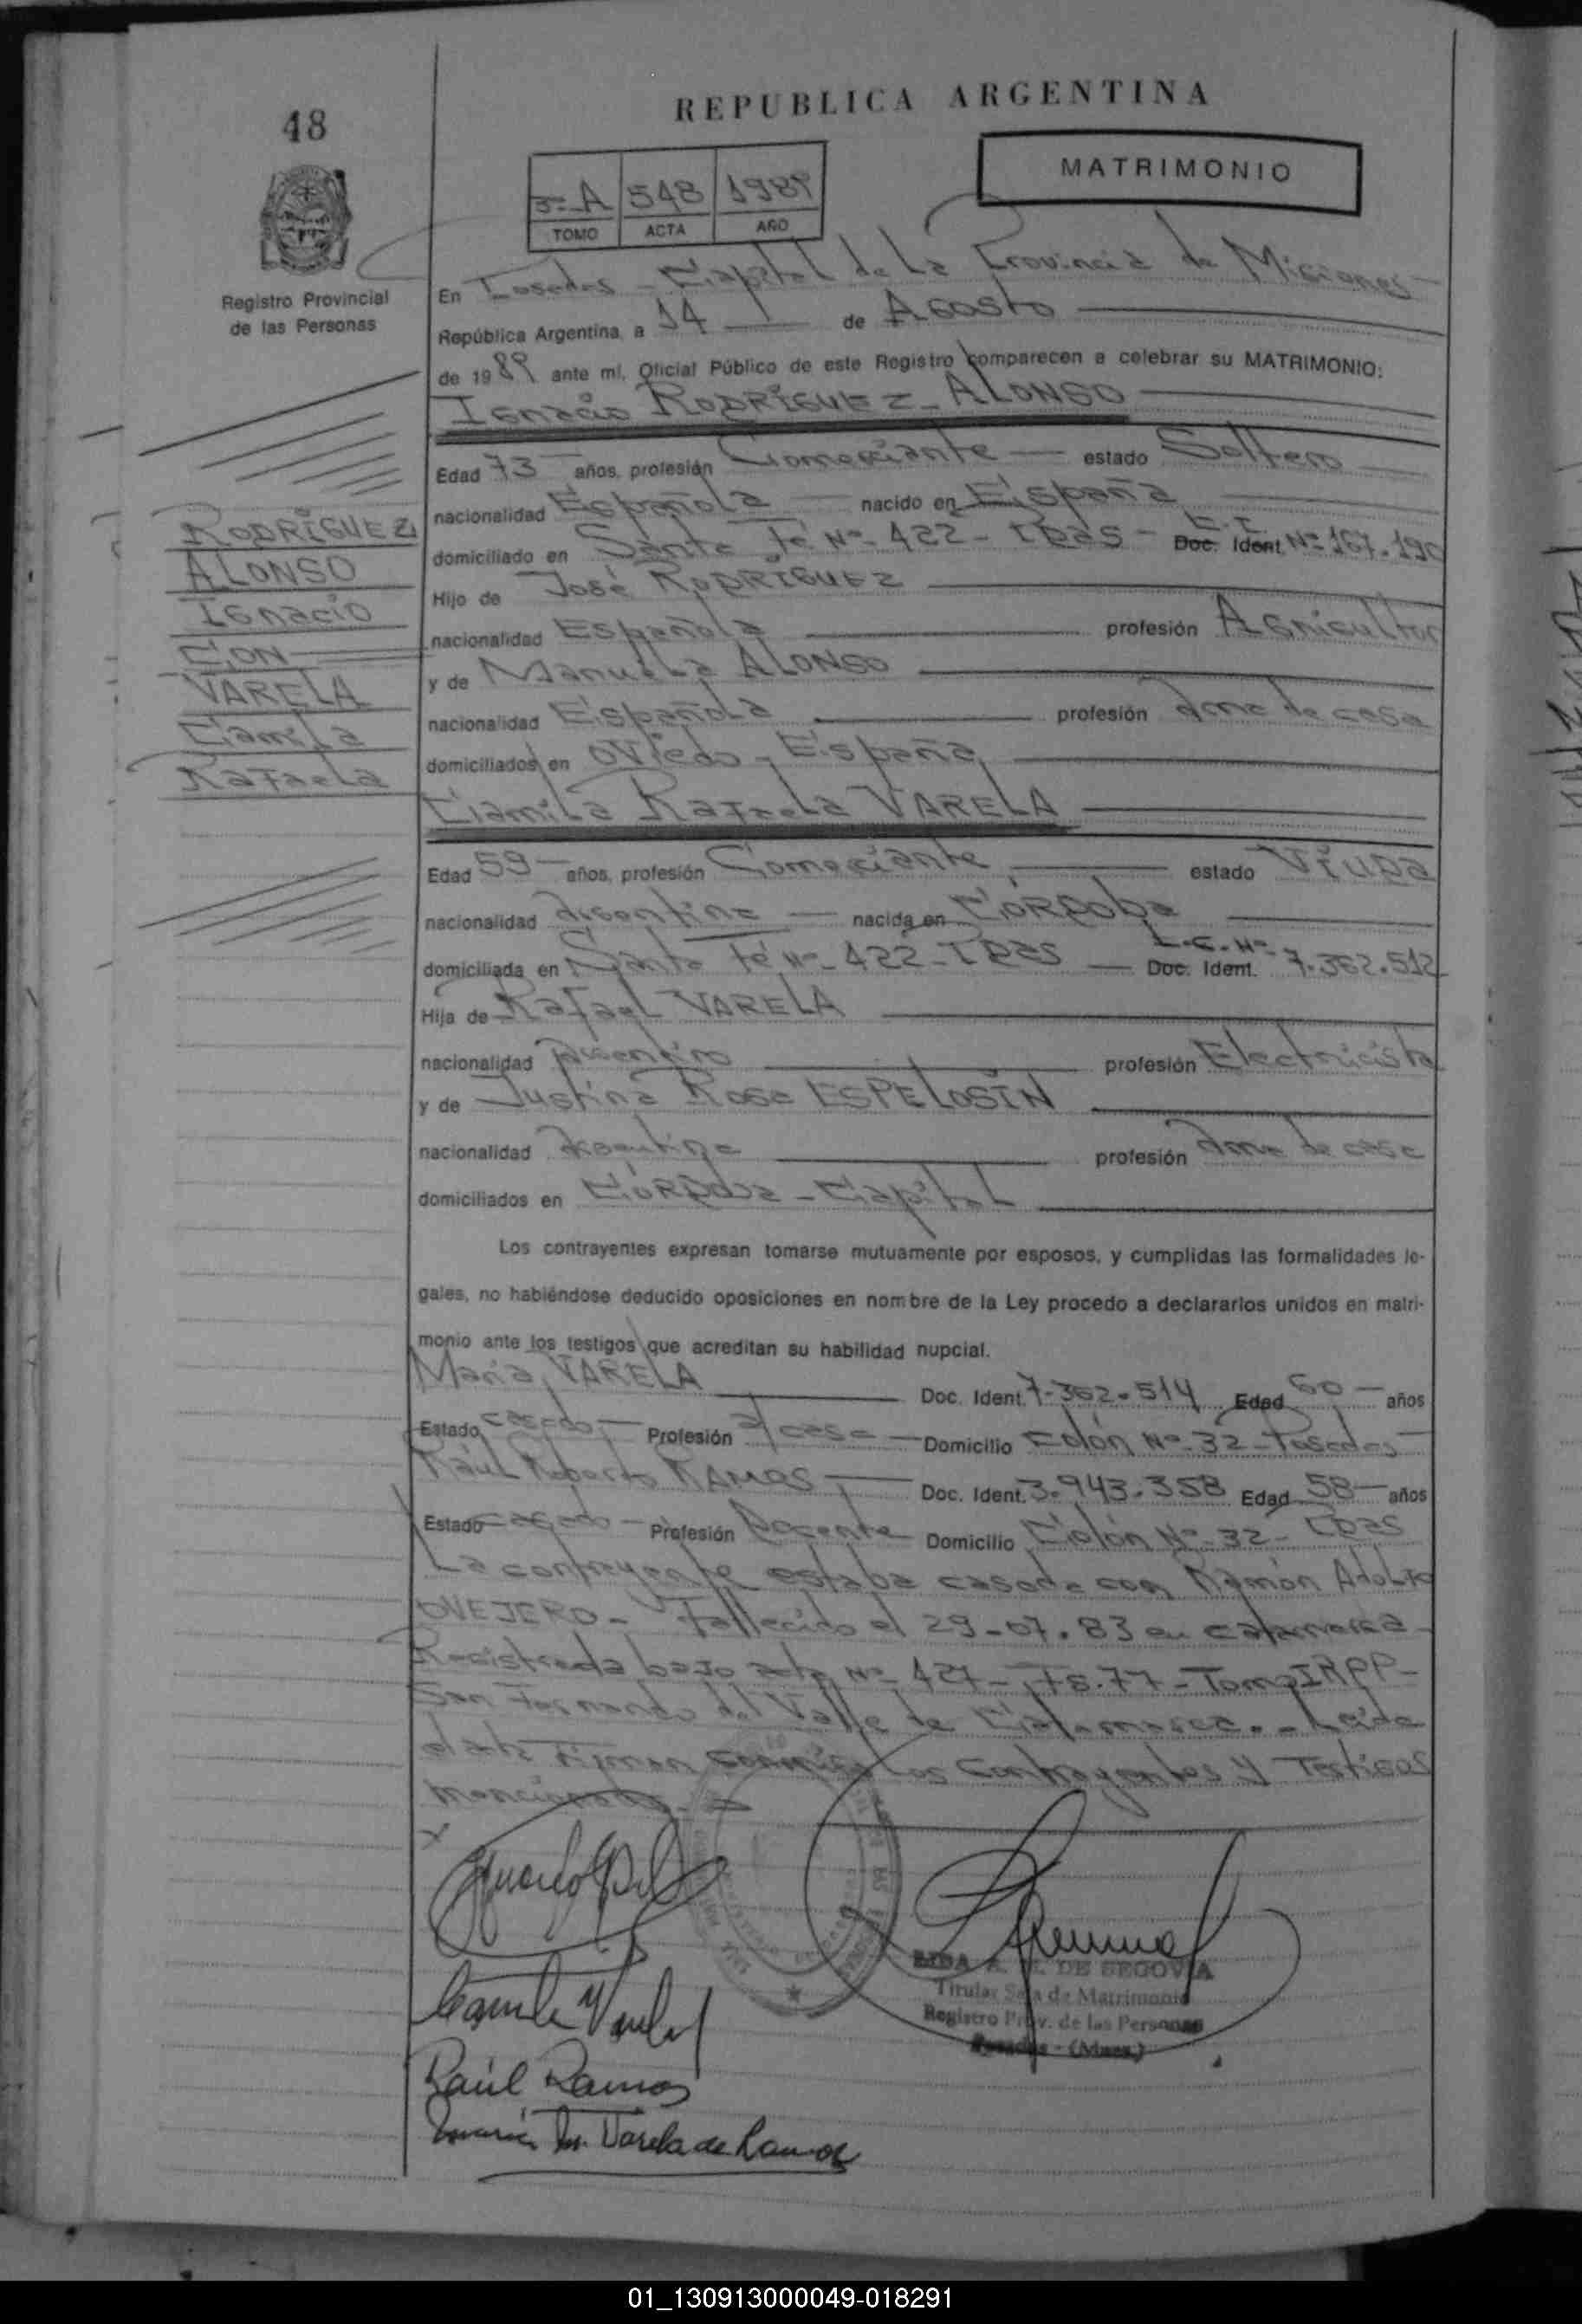 48
REPUBLICA ARGENTINA
MATRIMONIO
3=A 548 1989
TOMO ACTA AÑO
Registro Provincial
de las Personas
En Posadas - Capital de la Provincia de Misiones
República Argentina, a 14 de Agosto
de 1989 ante mí, Oficial Público de este Registro comparecen a celebrar su MATRIMONIO:
Ignacio RODRÍGUEZ - ALONSO
Edad 73 años, profesión Comerciante estado Soltero
nacionalidad Española nacido en España
domiciliado en Santa Fé Nº 422 - Pdas - Doc. Ident. C.I. Nº 167.190
Hijo de José RODRÍGUEZ
nacionalidad Española profesión Agricultor
y de Manuela ALONSO
nacionalidad Española profesión ama de casa
domiciliados en Oviedo - España
Camila Rafaela VARELA
RODRÍGUEZ
ALONSO
Ignacio
CON
VARELA
Camila
Rafaela
Edad 59 años, profesión Comerciante estado Viuda
nacionalidad Argentina nacida en CÓRDOba
domiciliada en Santa Fé Nº 422 - Pdas Doc. Ident. L.C. Nº 7.362.512
Hija de Rafael VARELA
nacionalidad Argentino profesión Electricista
y de Justina Rosa ESPELOSÍN
nacionalidad Argentina profesión ama de casa
domiciliados en CÓRDOba - Capital
Los contrayentes expresan tomarse mutuamente por esposos, y cumplidas las formalidades le-
gales, no habiéndose deducido oposiciones en nombre de la Ley procedo a declararlos unidos en matri-
monio ante los testigos que acreditan su habilidad nupcial.
María VARELA Doc. Ident. 7.362.514 Edad 60 años
Estado casada Profesión a/casa Domicilio Colón Nº 32 - Posadas
Raúl Roberto RAMOS Doc. Ident. 3.943.358 Edad 58 años
Estado casado Profesión Docente Domicilio Colón Nº 32 - Pdas
La contrayente estaba casada con Ramón Adolfo
OVEJERO - Fallecido el 29-07.83 en Catamarca -
Registrada bajo acta Nº 427 - Fs.77 - Tomo
San Fernando del Valle de Catamarca. - Leída
el acta firman conmigo los contrayentes y Testigos
mencionados. -
Camila Varela
DE SEGOVIA
Titular Sala de Matrimonio
Registro Prov. de las Personas
Posadas - (Mnes.)
Raúl Ramos
María Varela de Ramos
01_130913000049-018291